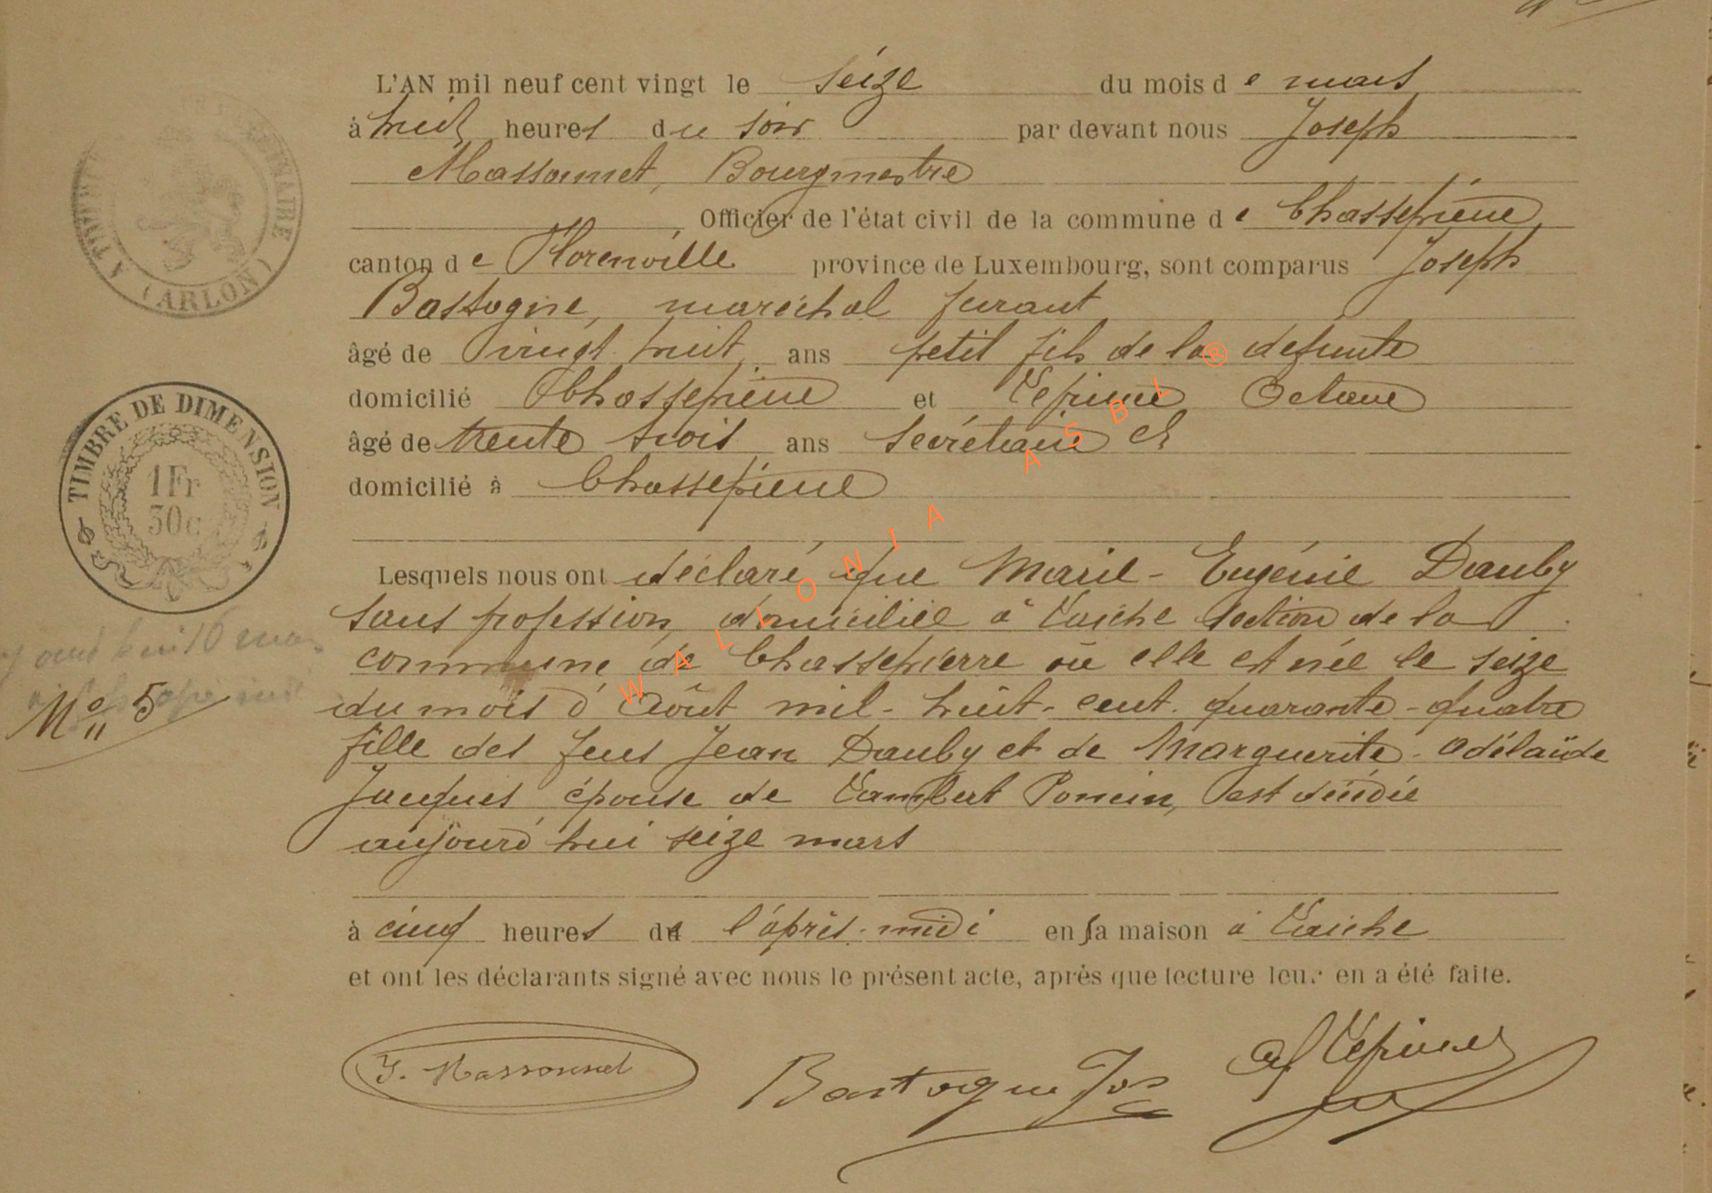 L'AN mil neuf cent vingt le seize du mois de mars
à huit heures du soir par devant nous Joseph
Massonnet, Bourgmestre
Officier de l'état civil de la commune de Chassepierre
canton de Florenville province de Luxembourg, sont comparus Joseph
Bastogne, maréchal ferant
âgé de vingt huit ans petit fils de la défunte
domicilié Chassepierre et Lepinne Octave
âgé de trente trois ans secrétaire et
domicilié à Chassepierre
Lesquels nous ont déclaré que Marie-Eugénie Dauby
sans profession, domiciliée à Laiche section de la
commune de Chassepierre où elle est née le seize
du mois d'Août mil-huit-cent-quarante-quatre
fille des feus Jean Dauby et de Marguerite-Adélaïde
Jacques, épouse de Lambert Poncin, est décédée
aujourd'hui seize mars
à cinq heures de l'après-midi en sa maison à Laiche
et ont les déclarants signé avec nous le présent acte, après que lecture leur en a été faite.
J. Massonnet Bastogne Jos
N° 5
TIMBRE DE DIMENSION
1Fr
30c
(ARLON)
WALLONIA ASBL ®